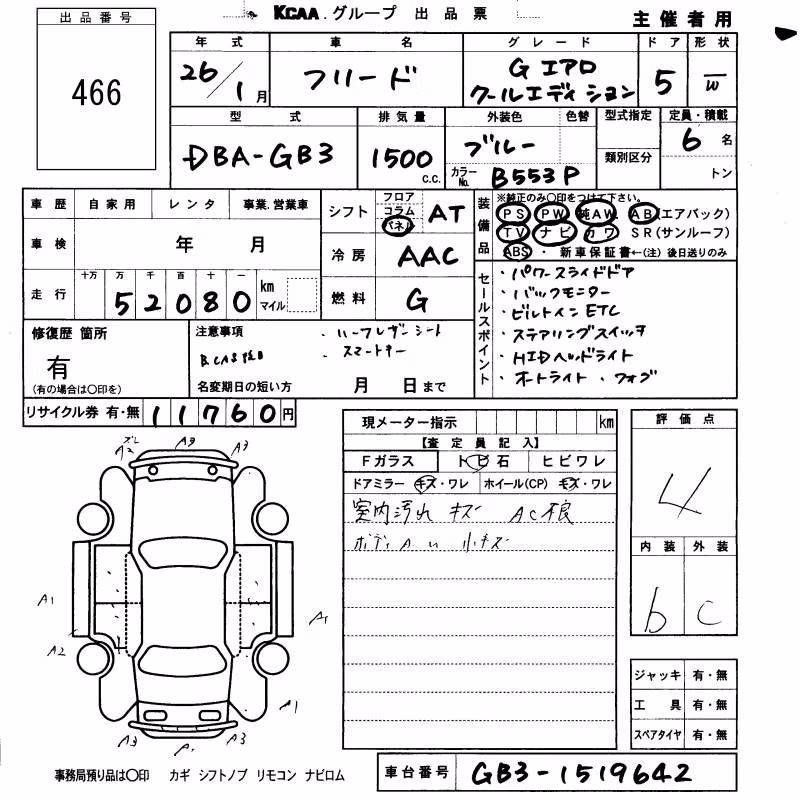 KCAA.グループ 出品票
主催者用
出品番号
466
年式 車名 グレード ドア 形状
26/1月 フリード G エアロ 5 W
クールエディション
型式 排気量 外装色 色替 型式指定 定員・積載
DBA-GB3 1500 c.c. ブルー 6名
類別区分
カラーNo. B553P トン
車歴 自家用 レンタ 事業.営業車
車検 年 月
走行 十万 万 千 百 十 一
52080 km マイル
シフト フロア コラム パネル AT
冷房 AAC
燃料 G
装備品 ※純正のみ○印をつけて下さい。
PS PW 純AW. AB(エアバック)
TV ナビ カワ SR(サンルーフ)
ABS ・ 新車保証書←(注) 後日送りのみ
セールスポイント
・パワースライドドア
・バックモニター
・ビルトインETC
・ステアリングスイッチ
・HIDヘッドライト
・オートライト ・フォグ
修復歴 箇所
有
(有の場合は○印を)
注意事項
・ハーフレザーシート
・スマートキー
名変期日の短い方 月 日まで
リサイクル券 有・無 11760円
現メーター指示 km
【査定員記入】
Fガラス トビ石 ヒビワレ
ドアミラー キズ・ワレ ホイール(CP) キズ・ワレ
室内汚れ キズ
評価点
4
内装 外装
b C
A2 A9 A3
A1
A1
A2
A1
A3 A1 A3
ジャッキ 有・無
工具 有・無
スペアタイヤ 有・無
事務局預り品は○印 カギ シフトノブ リモコン ナビロム
車台番号 GB3-1519642